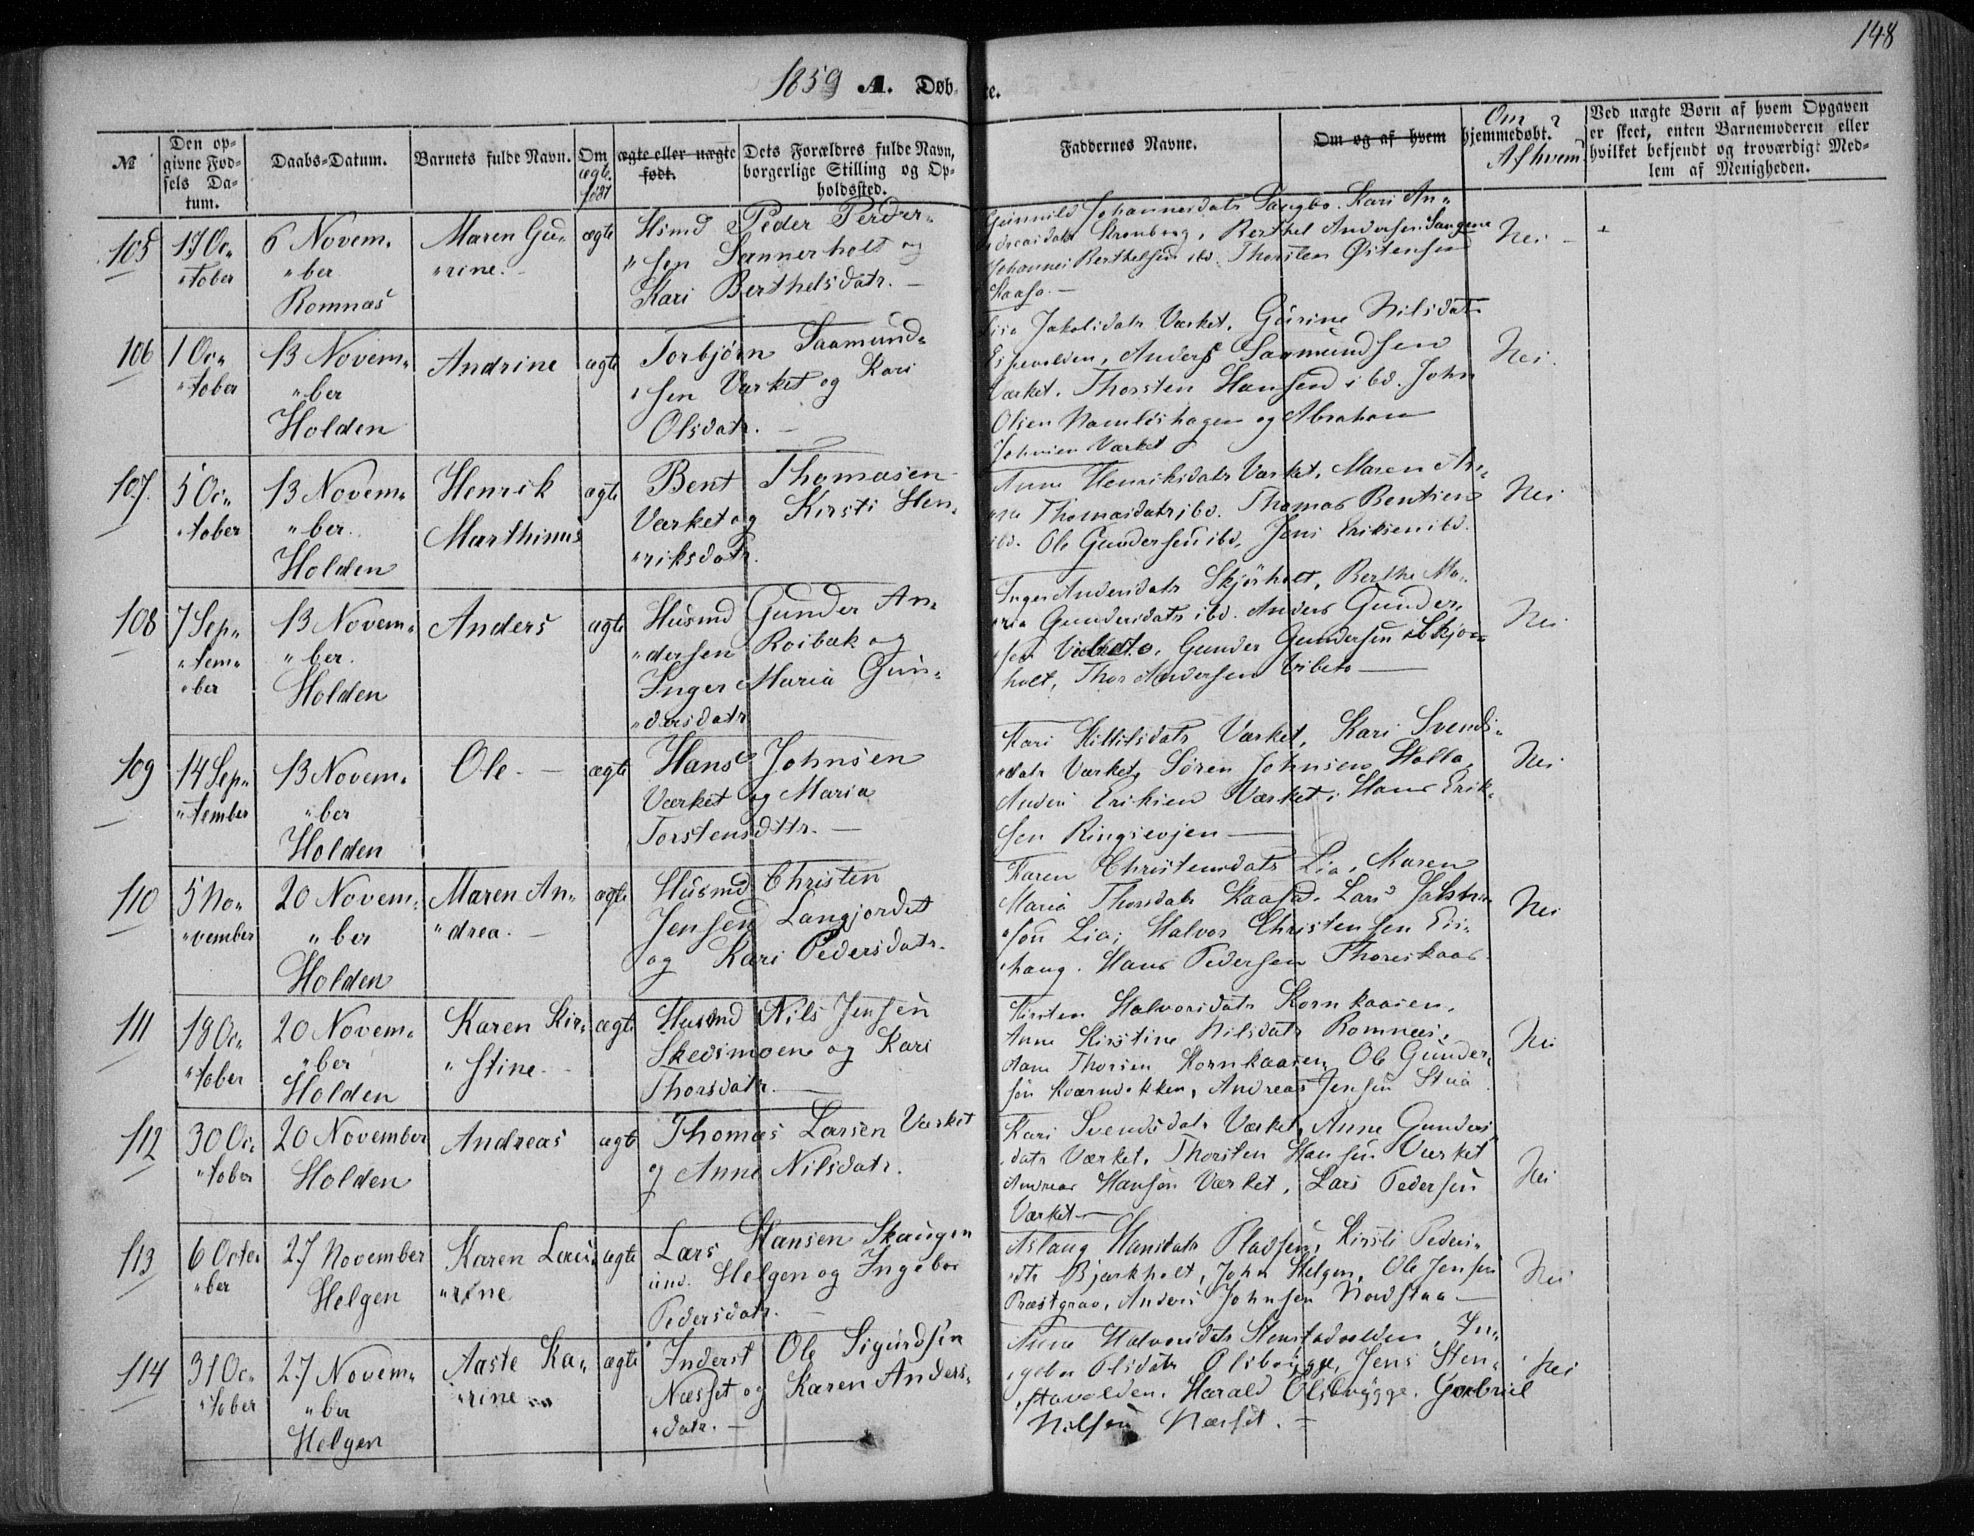 148
1859 A. Døb-te.
№
Den op-
givne Fød-
sels Da-
tum.
Daabs-Datum.
Barnets fulde Navn.
Om
ægte
født
ægte eller uægte
født.
Dets Forældres fulde Navn,
borgerlige Stilling og Op-
holdssted.
Faddernes Navne.
Om og af hvem
Om
hjemmedøbt?
Af hvem
Ved uægte Børn af hvem Opgaven
er skeet, enten Barnemoderen eller
hvilket bekjendt og troværdigt Med-
lem af Menigheden.
105
17 Oc„
„tober
6 Novem„
„ber
Romnæs
Maren Gu„
„rine.
ægte
Hsmd Peder Peder„
„sen Sannerholt og
Kari Berthelsdatr. —
Gunnild Johannesdatr Sangbo. Kari An„
dreasdatr Strømborg, Berthel Andersen Saugene
Johannes Berthelsen ibd. Thorsten Østensen
Kaasa. —
Nei —
106
1 Oc„
„tober
13 Novem„
„ber
Holden
Andrine
ægte
Torbjørn Saamund„
„sen Værket og Kari
Olsdatr. —
Jakobsdatr Værket. Gurine Nilsdatr
Anders Saamundsen
Værket. Thorsten Hansen ibd. John
Olsen Namløshagen og Abraham
Johnsen Værket
Nei.
107.
5 Oc„
„tober
13 Novem„
„ber.
Holden
Henrik
Marthinus
ægte
Bent Thomasen
Værket og Kirsti Hen„
„riksdatr.
Anne Henriksdatr Værket, Maren An„
Thomasdatr ibd. Thomas Bentsen
ibd. Ole Gundersen ibd. Jens Eriksen ibd.
Nei
108
7 Sep„
„tem„
„ber
13 Novem„
„ber.
Holden
Anders
ægte
Husmd Gunder An„
„dersen Roibæk og
Inger Maria Gun„
„dersdatr
Inger Andersdatr Skjørholt, Berthe Ma„
ria Gundersdatr ibd. Anders Gunder„
sen Vibeto, Gunder Gundersen Skjør„
holt, Thor Andersen Vibeto —
Nei
109
14 Sep„
„tember
13 Novem„
„ber
Holden
Ole. —
ægte
Hans Johnsen
Værket og Maria
Torstensdtr. —
Kari Kittilsdatr Værket, Kari Svends„
„datr Værket, Søren Johnsen Holla,
Anders Eriksen Værket, Hans Erik„
sen Ringsevjen —
Nei
110
5 No„
„vember
20 Novem„
„ber
Holden
Maren An„
„drea. —
ægte
Husmd Christen
Jensen Langjordet
og Kari Pedersdatr.
Karen Christensdatr Lia, Maren
Maria Thorsdatr Kaasa. Lars Jakob
sen Lia, Halvor Christensen Eis„
haug. Hans Pedersen Thoreskaas
Nei
111
18 Oc„
„tober
20 Novem„
„ber
Holden
Karen Kir„
„stine.
ægte
Husmd Nils Jensen
Skedsmoene og Kari
Thorsdatr. —
Kirsten Halvorsdatr Kornkaasen,
Anne Kirstine Nilsdatr Romnæs,
Thorsen Kornkaasen, Ole Gunder„
sen Kværndokken, Andreas Jensen Stua
Nei
112
30 Oc„
„tober
20 November
Holden
Andreas
ægte
Thomas Larsen Værket
og Anne Nilsdatr.
Kari Svendsdatr Værket, Anne Gunders
datr Værket. Thorsten Hansen Værket
Andreas Hansen Værket, Lars Pedersen
Værket —
Nei
113
6 Octo„
„ber
27 November
Helgen
Karen Lau„
„rine
ægte
Lars Hansen Skaugen
und. Helgen og Ingebor
Pedersdatr. —
Aslaug Hansdatr Pladsen, Kirsti Peders„
„dtr Bjerkholt, John Helgen, Ole Jensen
Præstgrav, Anders Johnsen Nordstaa —
Nei
114
31 Oc„
„tober
27 Novem„
„ber
Helgen
Aaste Ka„
„rine
ægte
Inderst Ole Sigurdsen
Næsset og Karen Anders„
„datr. —
Anne Halvorsdatr Stenstadvolden, In„
„gebor Olsdatr Olsbrygge, Jens Sten„
„stavolden. Harald Olsbrygge. Gabriel
Nilsen Næsset. —
Nei